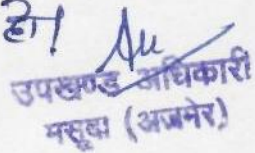 है।
उपखण्ड अधिकारी
मसूदा (अजमेर)